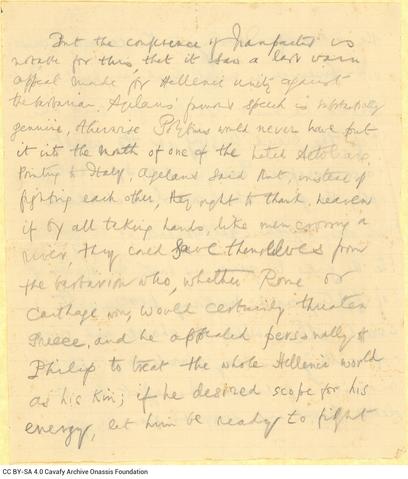 But the conference of Naupactus is
notable for this, that it saw a last warm
appeal made for Hellenic unity against
the barbarian. Agelaus' famous speech is substantially
genuine, otherwise Polybius would never have put
it into the mouth of one of the hated Aetolians.
Pointing to Italy, Agelaus said that, instead of
fighting each other, they ought to thank heaven
if by all taking hands, like men crossing a
river, they could save themselves from
the barbarian who, whether Rome or
Carthage won, would certainly threaten
Greece, and he appealed personally to
Philip to treat the whole Hellenic world
as his kin; if he desired scope for his
energy, let him be ready to fight
CC BY-SA 4.0 Cavafy Archive Onassis Foundation